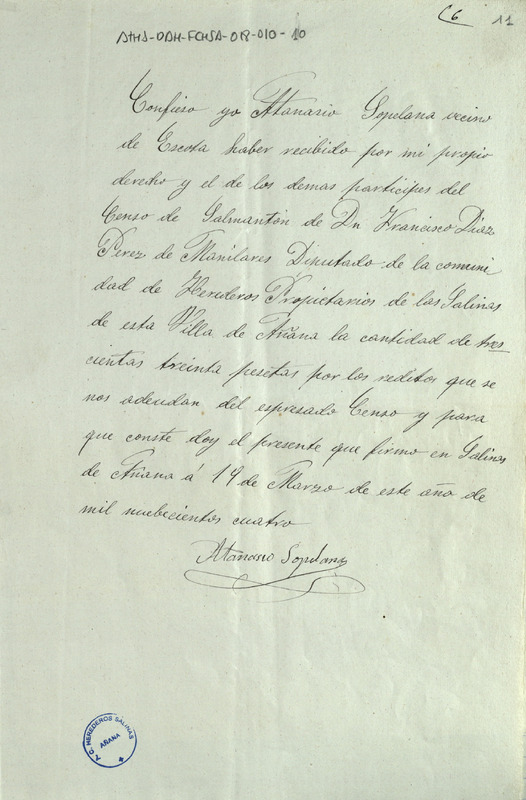 C6 11
ATHS-DDH-FCHSA-018-010-10
Confieso yo Atanasio Sopelana vecino
de Escota haber recibido por mi propio
derecho y el de los demas participes del
Censo de Salmantón de Dn Francisco Diaz
Perez de Manilares Diputado de la comuni
dad de Herederos Propietarios de las Salinas
de esta Villa de Añana la cantidad de tres
cientas treinta pesetas por los reditos que se
nos adeudan del espresado Censo y para
que conste doy el presente que firmo en Salinas
de Añana á 19 de Marzo de este año de
mil nuebecientos cuatro
Atanasio Sopelana
A. C. HEREDEROS SALINAS
AÑANA